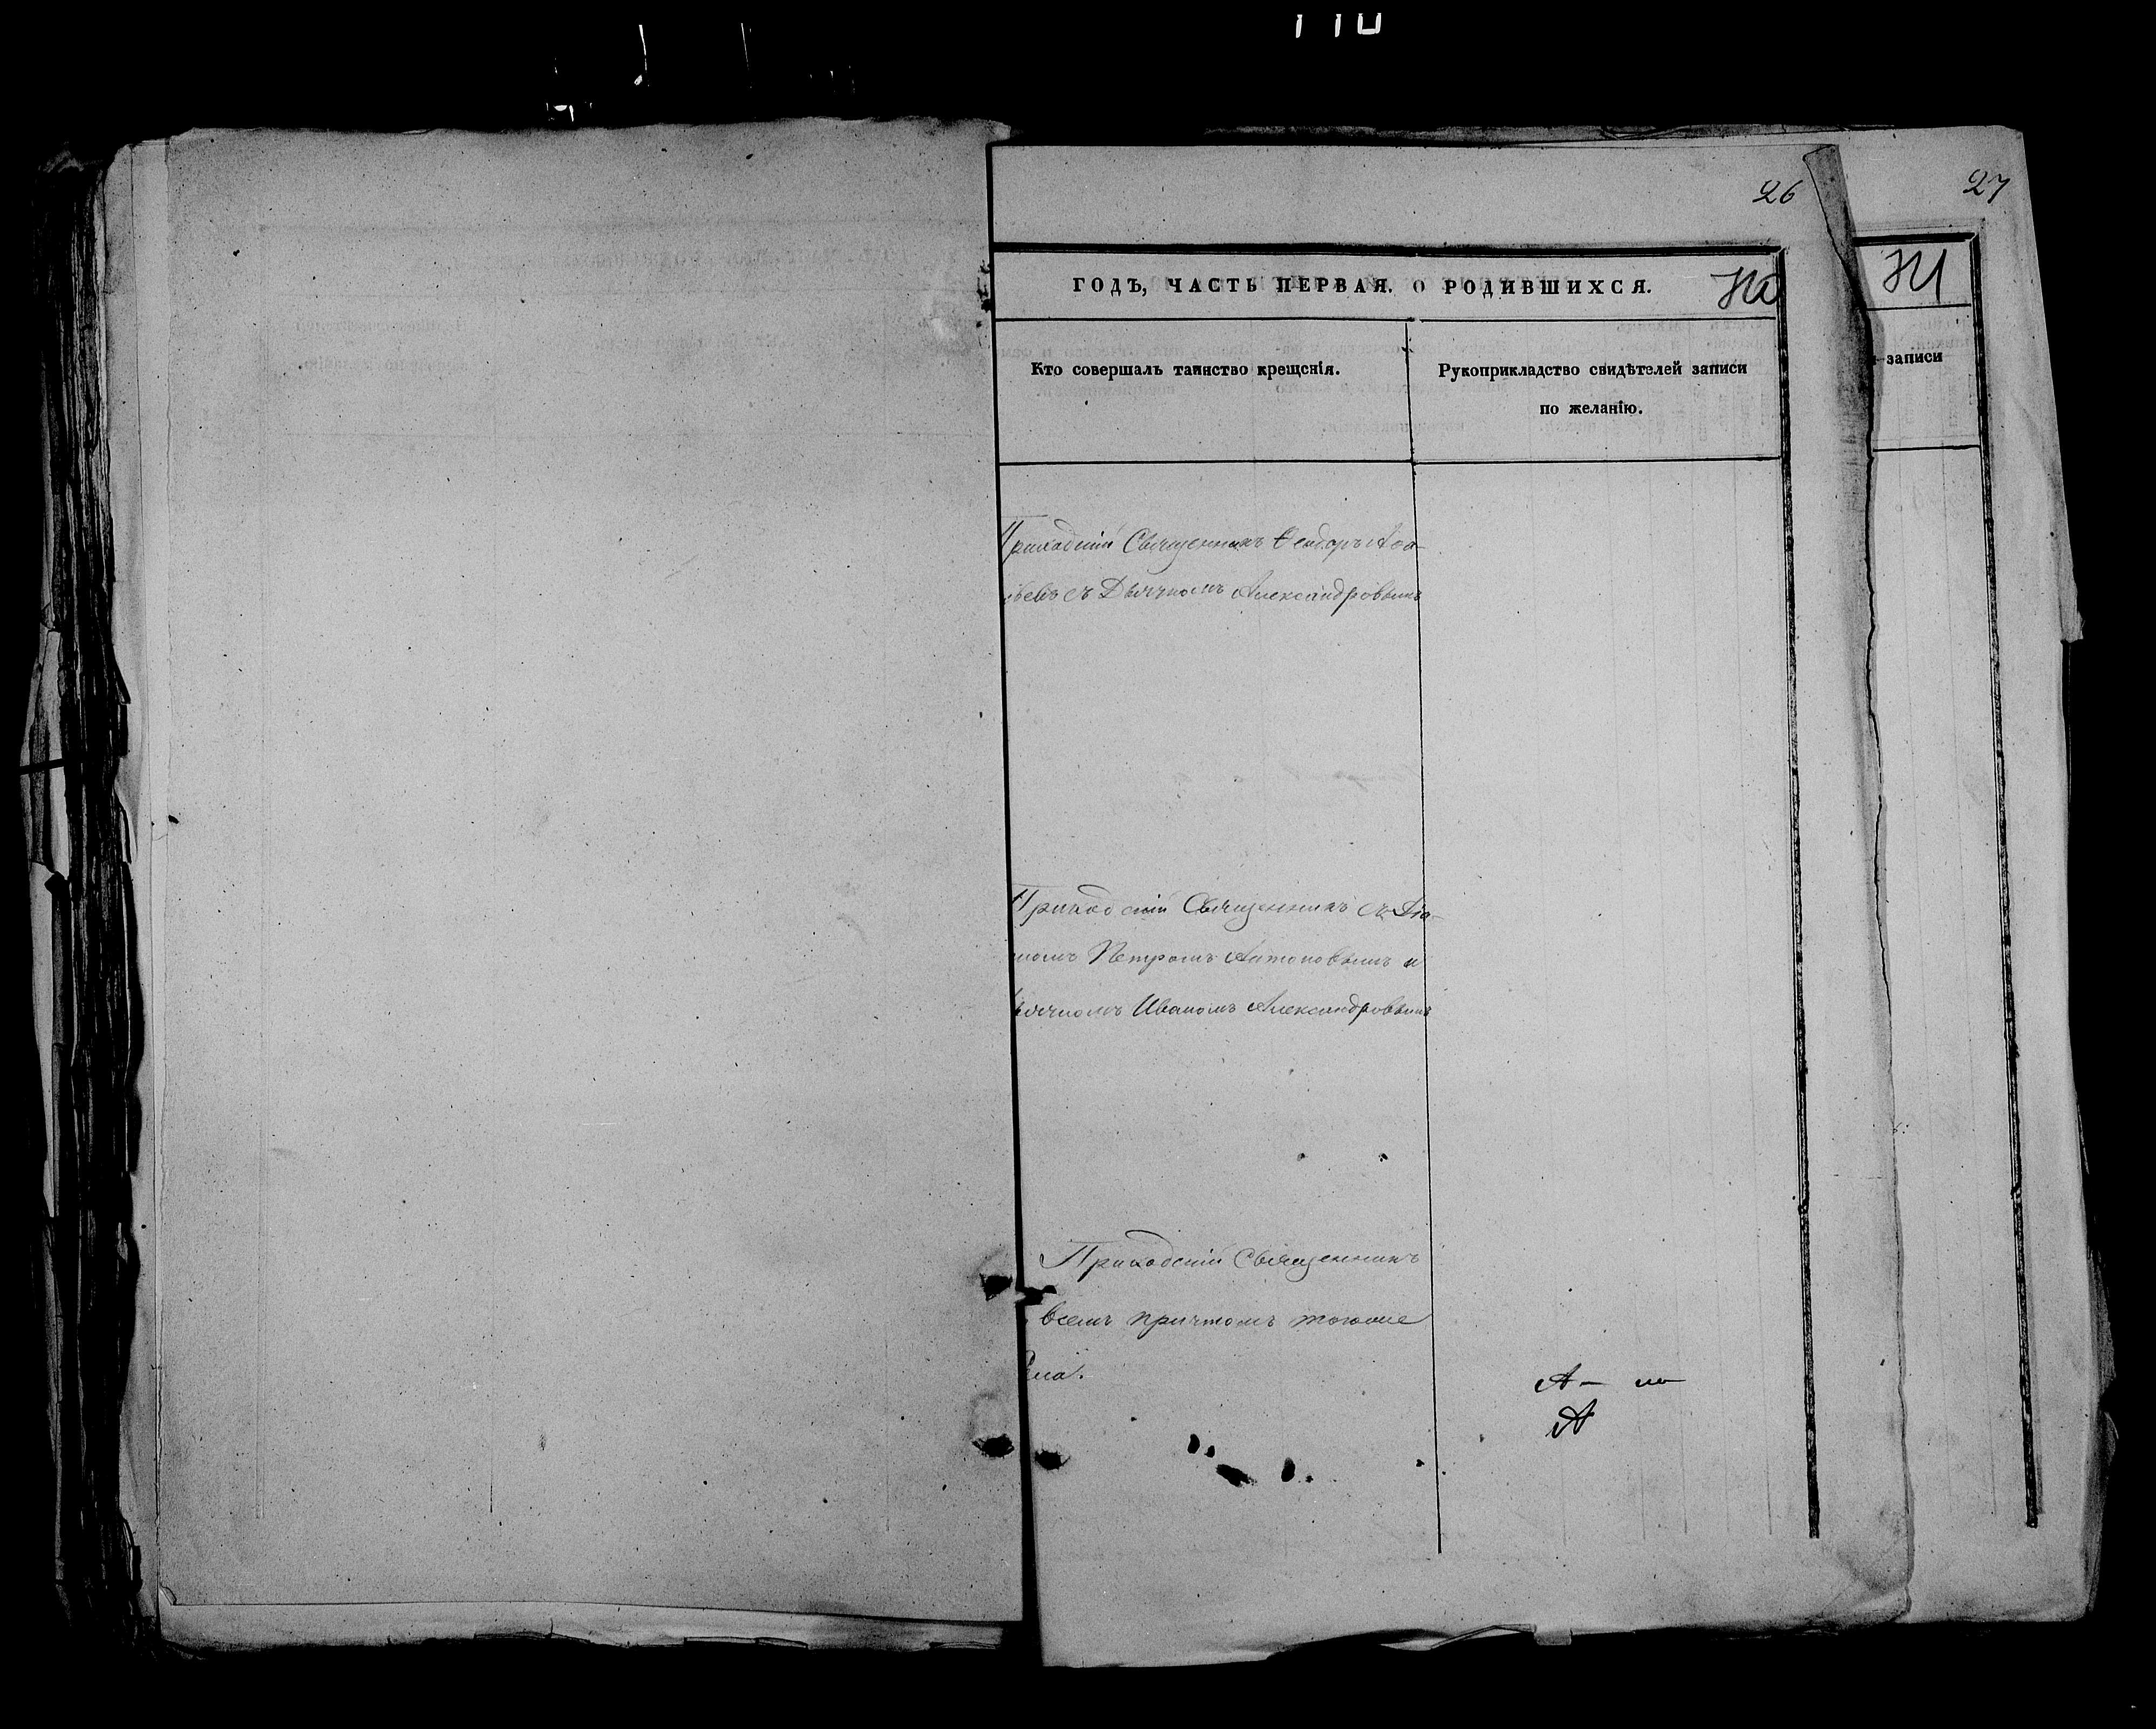 26
27
ГОДЪ, ЧАСТЬ ПЕРВАЯ, О РОДИВШИХСЯ.
Кто совершалъ таинство крещенія.
Рукоприкладство свидѣтелей записи
по желанію.
записи
Приходскій Священникъ Ѳеодоръ
съ Дьячкомъ Александровымъ
Приходскій Священникъ съ Діа-
кономъ Петромъ Антоновымъ и
Дьячкомъ Иваномъ Александровымъ
Приходскій Священникъ
всемъ причтомъ тогоже